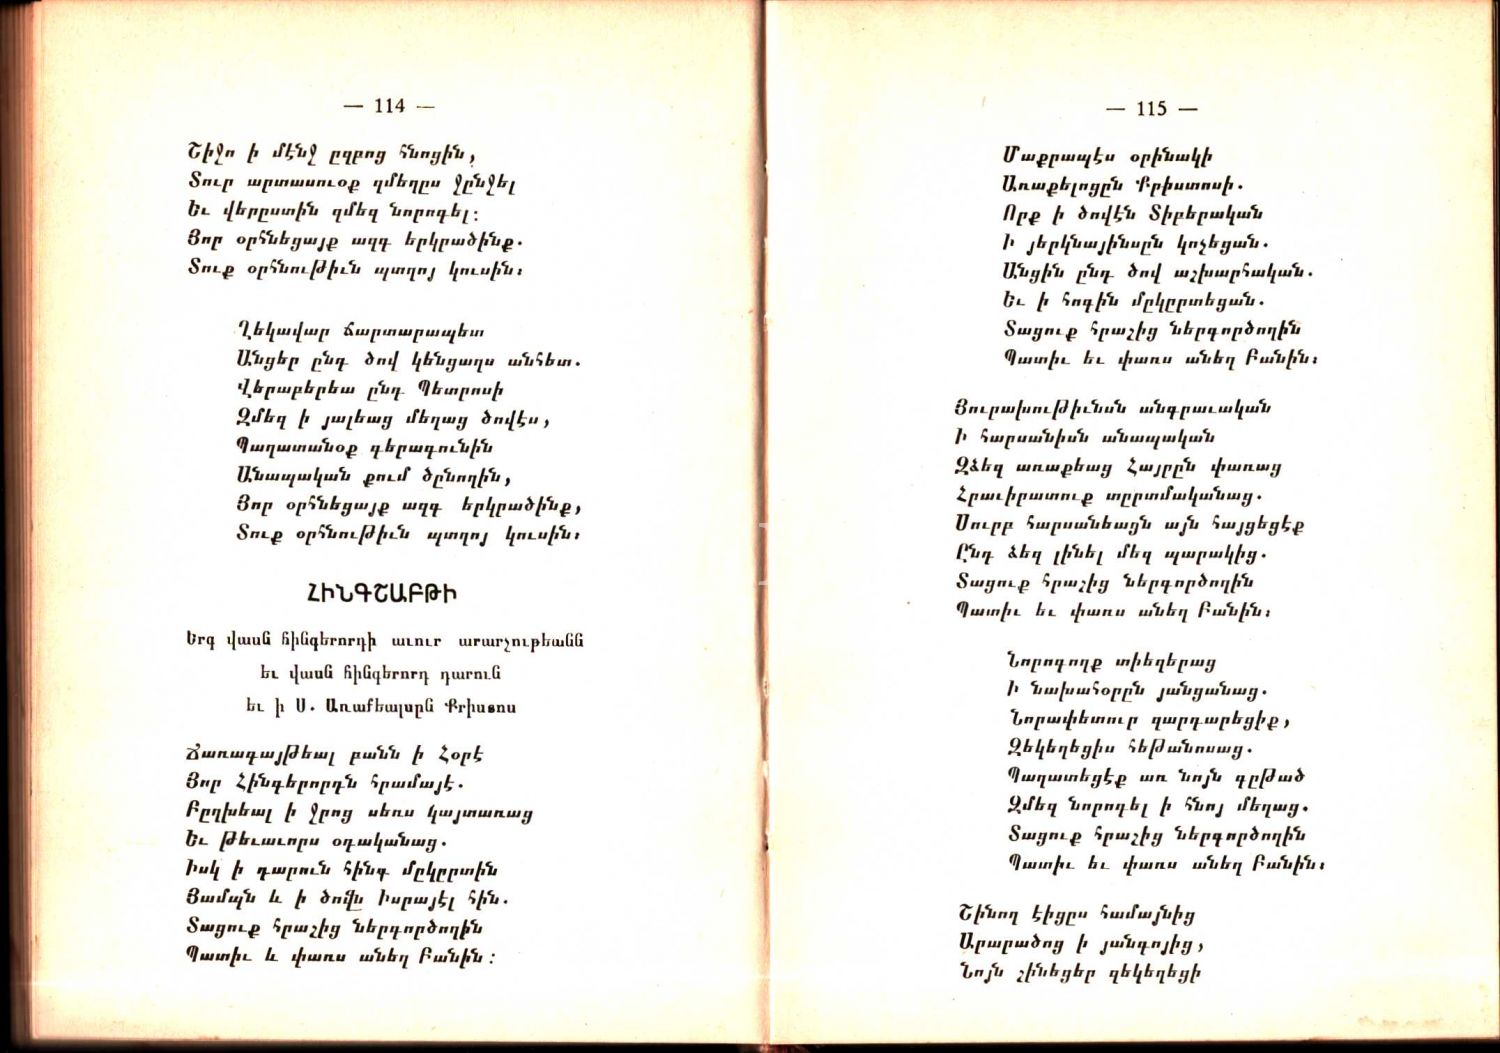 — 114 —
Շիջո ի մէնջ ըզբոց հնոցին,
Տուր արտասուօք զմեղըս ջընջել
Եւ վերըստին զմեզ նորոգել։
Յոր օրհնեցայք ազգ երկրածինք.
Տուք օրհնութիւն պտղոյ կուսին։
Ղեկավար ճարտարապետ
Անցեր ընդ ծով կենցաղս անհետ.
Վերաբերեա ընդ Պետրոսի
Զմեզ ի յալեաց մեղաց ծովէս,
Պաղատանօք գերագունին
Անապական քում ծընողին,
Յոր օրհնեցայք ազգ երկրածինք,
Տուք օրհնութիւն պտղոյ կուսին։
ՀԻՆԳՇԱԲԹԻ
Երգ վասն հինգերորդի աւուր արարչութեանն
եւ վասն հինգերորդ դարուն
եւ ի Ս. Առաքեալսըն Քրիստոս
Ճառագայթեալ բանն ի Հօրէ
Յոր Հինգերորդն հրամայէ.
Բըղխեալ ի ջրոց սեռս կայտառաց
Եւ թեւաւորս օդականաց.
Իսկ ի դարուն հինգ մըկըրտին
Յամպն և ի ծովն Իսրայէլ հին.
Տացուք հրաշից ներգործողին
Պատիւ և փառս անեղ Բանին։
— 115 —
Մաքրապէս օրինակի
Առաքելոցըն Քրիստոսի.
Որք ի ծովէն Տիբերական
Ի յերկնայինսըն կոչեցան.
Անցին ընդ ծով աշխարհական.
Եւ ի հոգին մըկըրտեցան.
Տացուք հրաշից ներգործողին
Պատիւ եւ փառս անեղ Բանին։
Յուրախութիւնսն անգրաւական
Ի հարսանիսն անապական
Զձեզ առաքեաց Հայրըն փառաց
Հրաւիրատուք տըրտմականաց.
Սուրբ հարսանեացն այն հայցեցէք
Ընդ ձեզ լինել մեզ պարակից.
Տացուք հրաշից ներգործողին
Պատիւ եւ փառս անեղ Բանին։
Նորոգողք տիեզերաց
Ի նախահօրըն յանցանաց.
Նորափետուր զարդարեցիք,
Զեկեղեցիս հեթանոսաց.
Պաղատեցէք առ նոյն գըթած
Զմեզ նորոգել ի հնոյ մեղաց.
Տացուք հրաշից ներգործողին
Պատիւ եւ փառս անեղ Բանին։
Շինող էիցըս համայնից
Արարածոց ի յանգոյից,
Նոյն շինեցեր զեկեղեցի